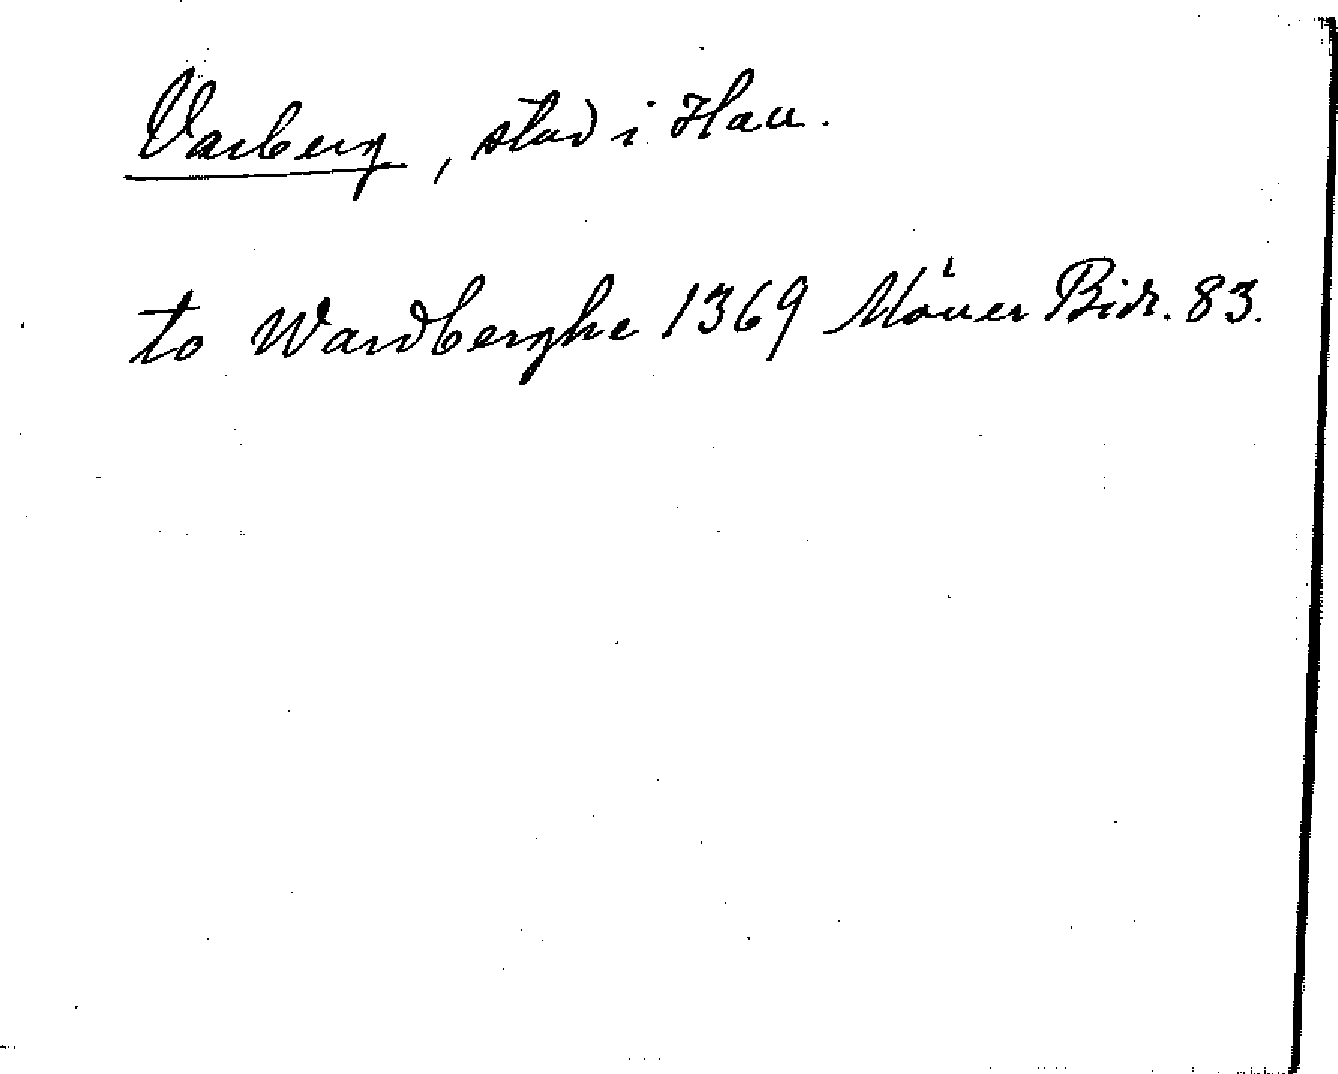 Varberg, stad i Hall.
to Wardberghe 1369 Mörner Bidr. 83.